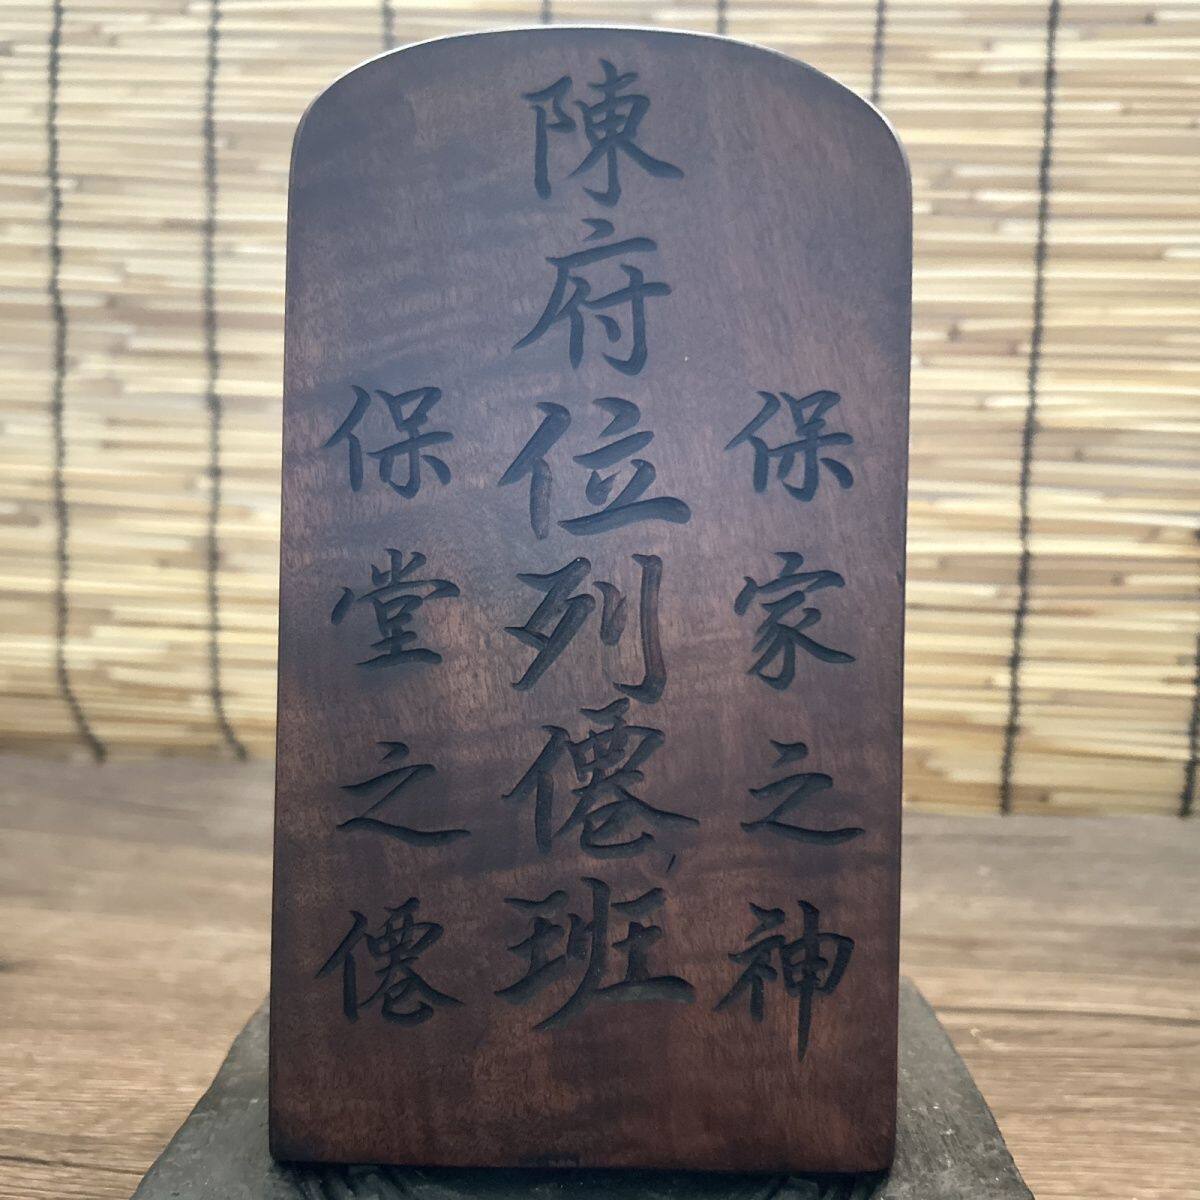 保家之神
陳府位列僊班
保堂之僊